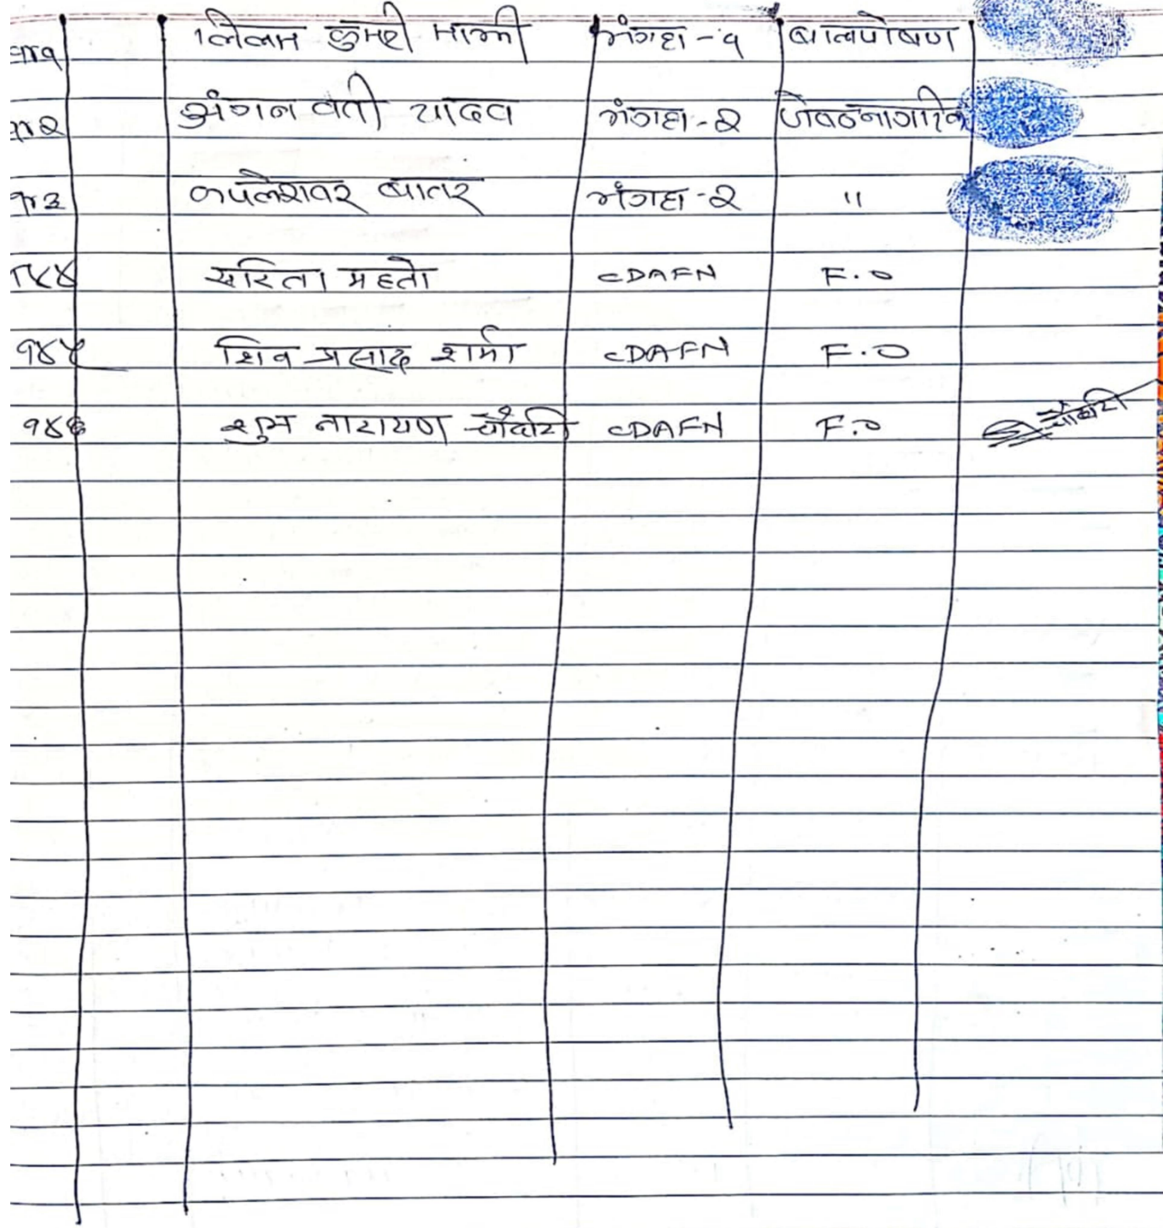 लिलम कुमारी माझी भंगाहा-१ बालपोषण
अंगन वती यादव भंगाहा-२ जेष्ठनागरिक
कपलेश्वर खातर भंगाहा-२ "
१४४ सरिता महतो CDAFN F.O
१४५ शिव प्रसाद शर्मा CDAFN F.O
१४६ शुभ नारायण चौधरी CDAFN F.O चौधरी